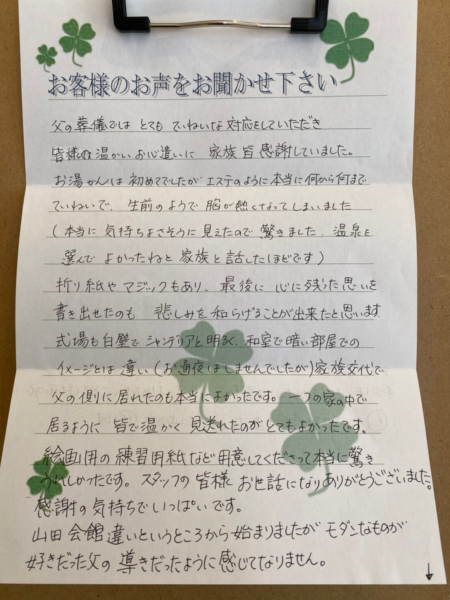 お客様のお声をお聞かせ下さい
父の葬儀では とても ていねいな対応をしていただき
皆様の温かいお心遣いに 家族皆感謝していました。
お湯かんは初めてでしたが エステのように本当に何から何まで
ていねいで、生前のようで 胸が熱くなってしまいました
(本当に気持ちよさそうに見えたので驚きました、温泉を
選んで よかったねと 家族と話したほどです)
折り紙や マジックもあり、最後に 心に残った思いを
書き出せたのも 悲しみを和らげることが出来たと思います
式場も白壁で シャンデリアと明るく、和室で暗い部屋での
イメージとは違い(お通夜はしませんでしたが)家族交代で
父の側に居れたのも本当によかったです。一つの家の中で
居るように 皆で温かく 見送れたのがとてもよかったです。
絵画用の練習用紙など用意してくださって本当に驚き
うれしかったです。スタッフの皆様 お世話になりありがとうございました。
感謝の気持ちでいっぱいです。
山田会館違いというところから始まりましたが モダンなものが
好きだった父の 導きだったように感じてなりません。
↓